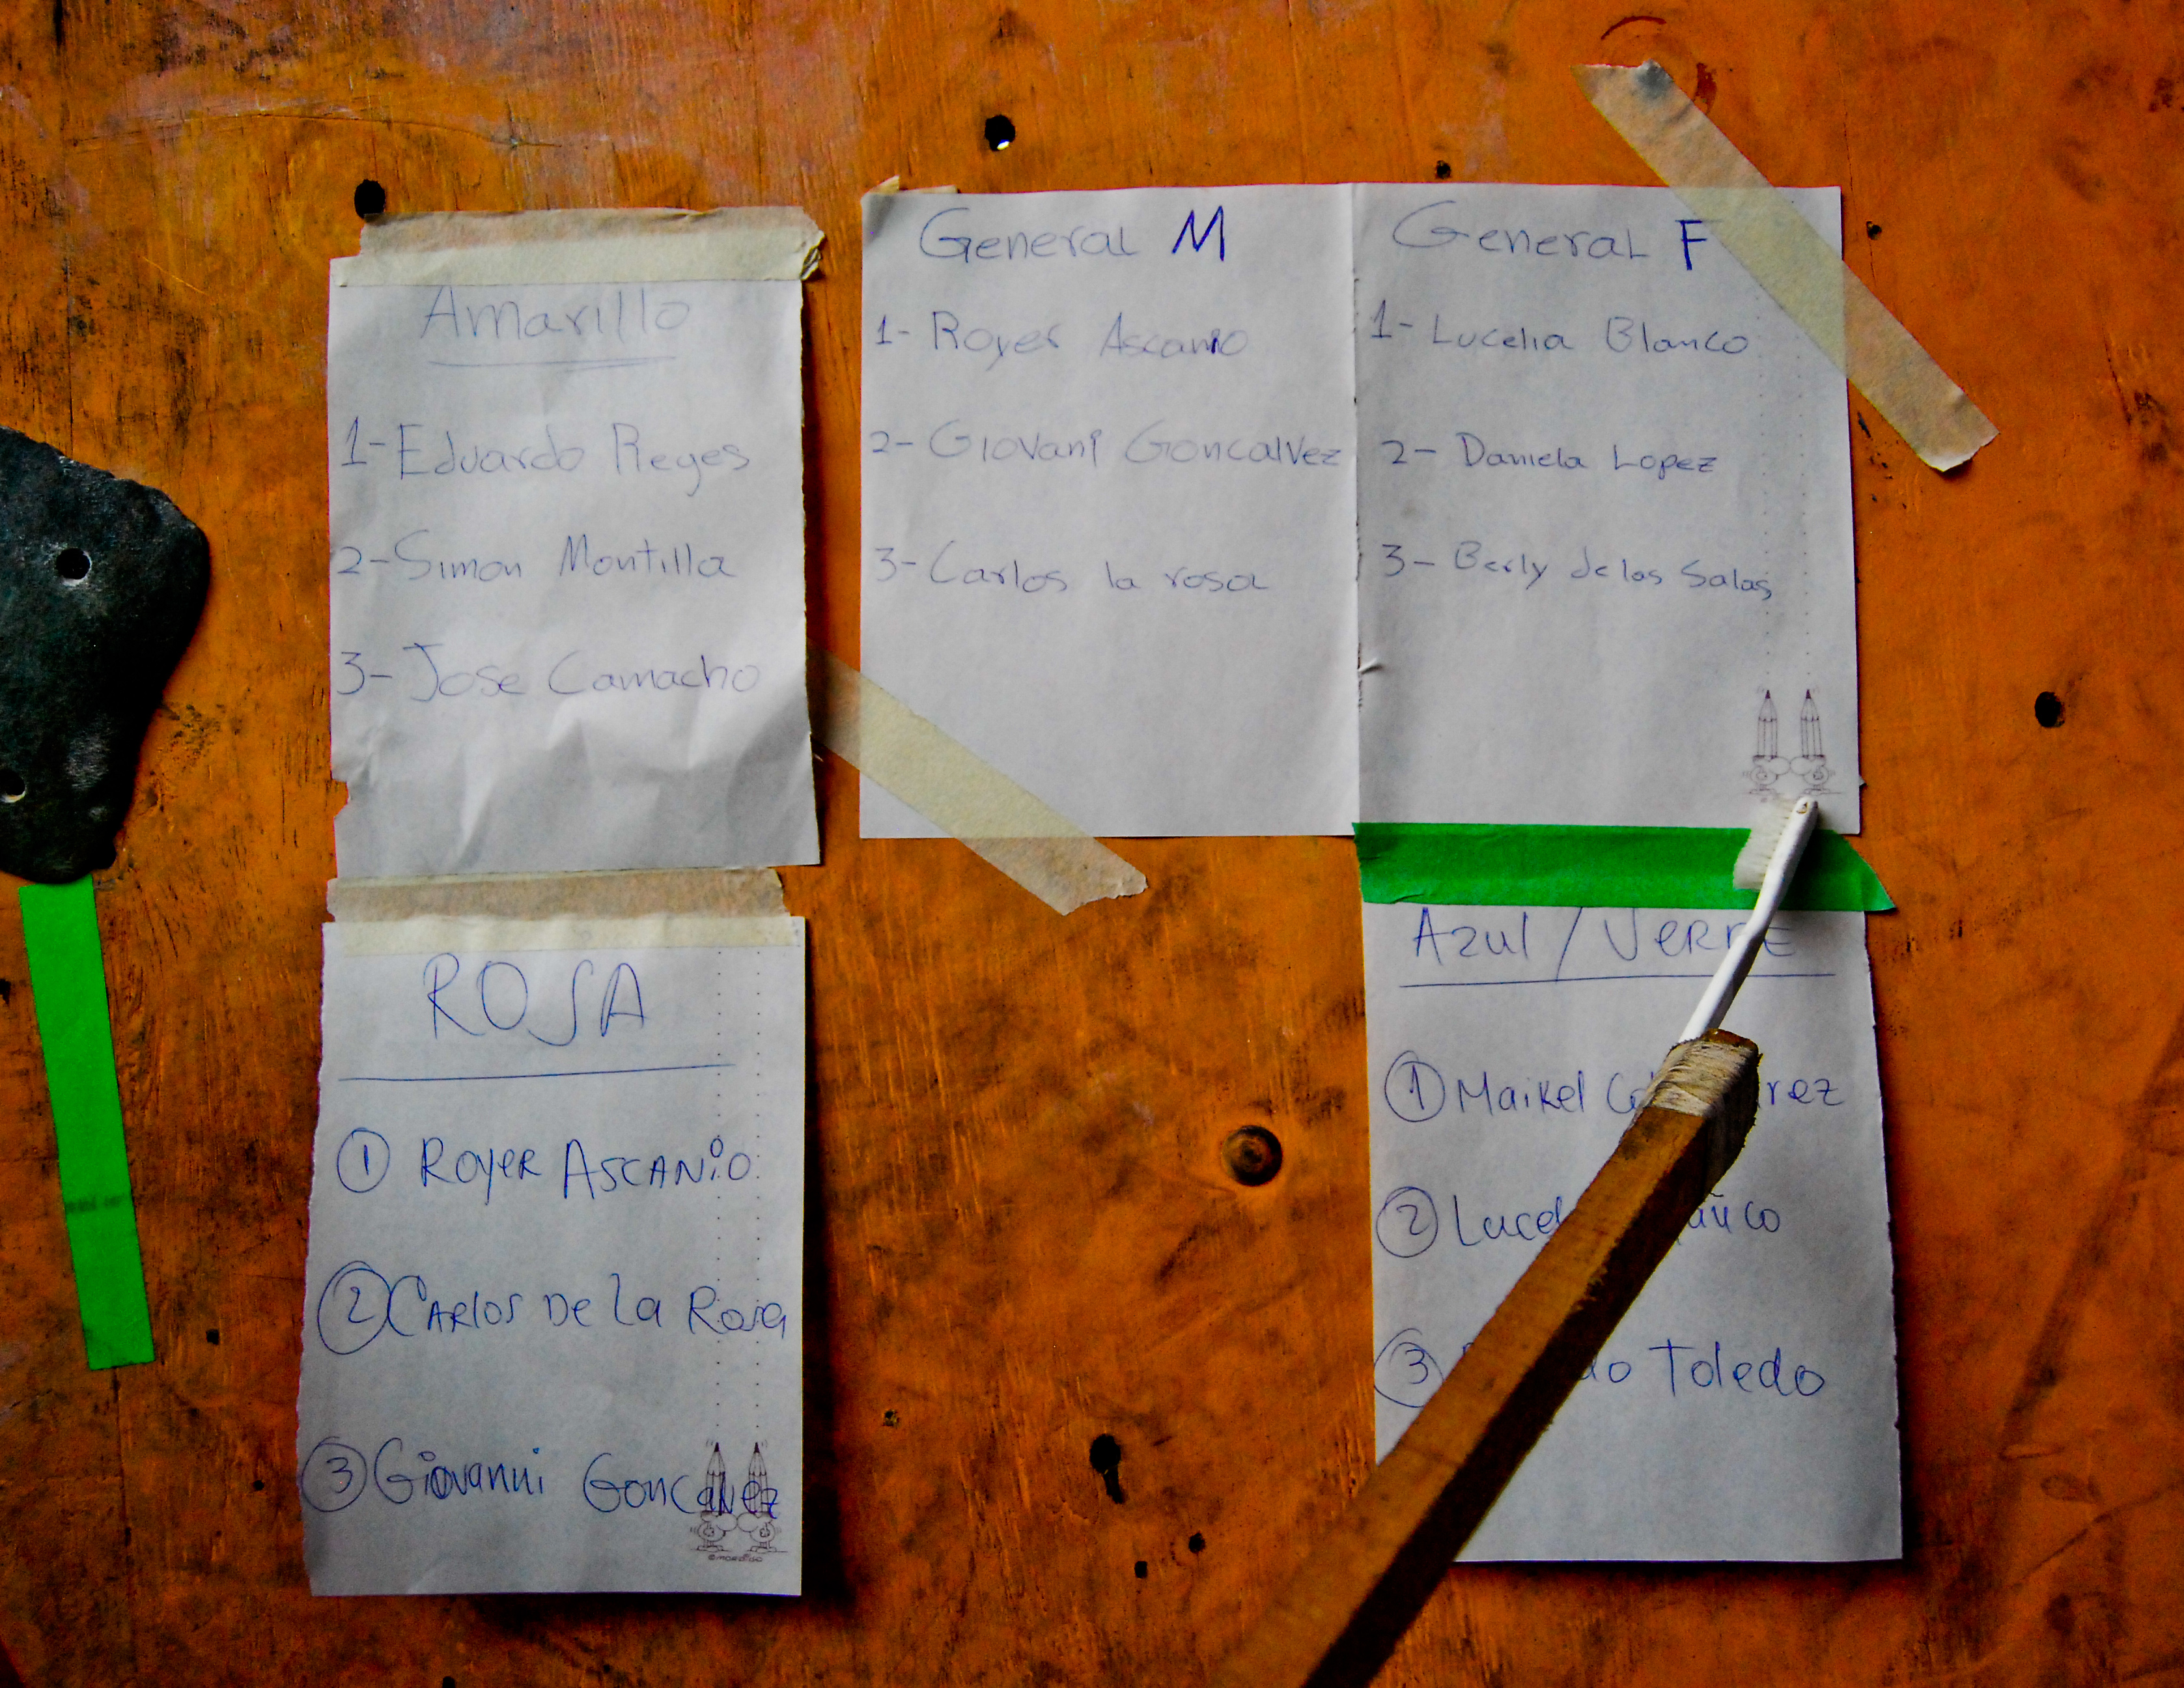 Amarillo
1- Eduardo Reyes
2- Simon Montilla
3- Jose Camacho
General M
1- Royer Ascanio
2- Giovani Goncalvez
3- Carlos la rosa
General F
1- Lucelia Blanco
2- Daniela Lopez
3- Berly de las Salas
ROSA
1 Royer Ascanio
2 Carlos De La Rosa
3 Giovanni Goncalvez
Azul / Verde
1 Maikel
2
3 Toledo